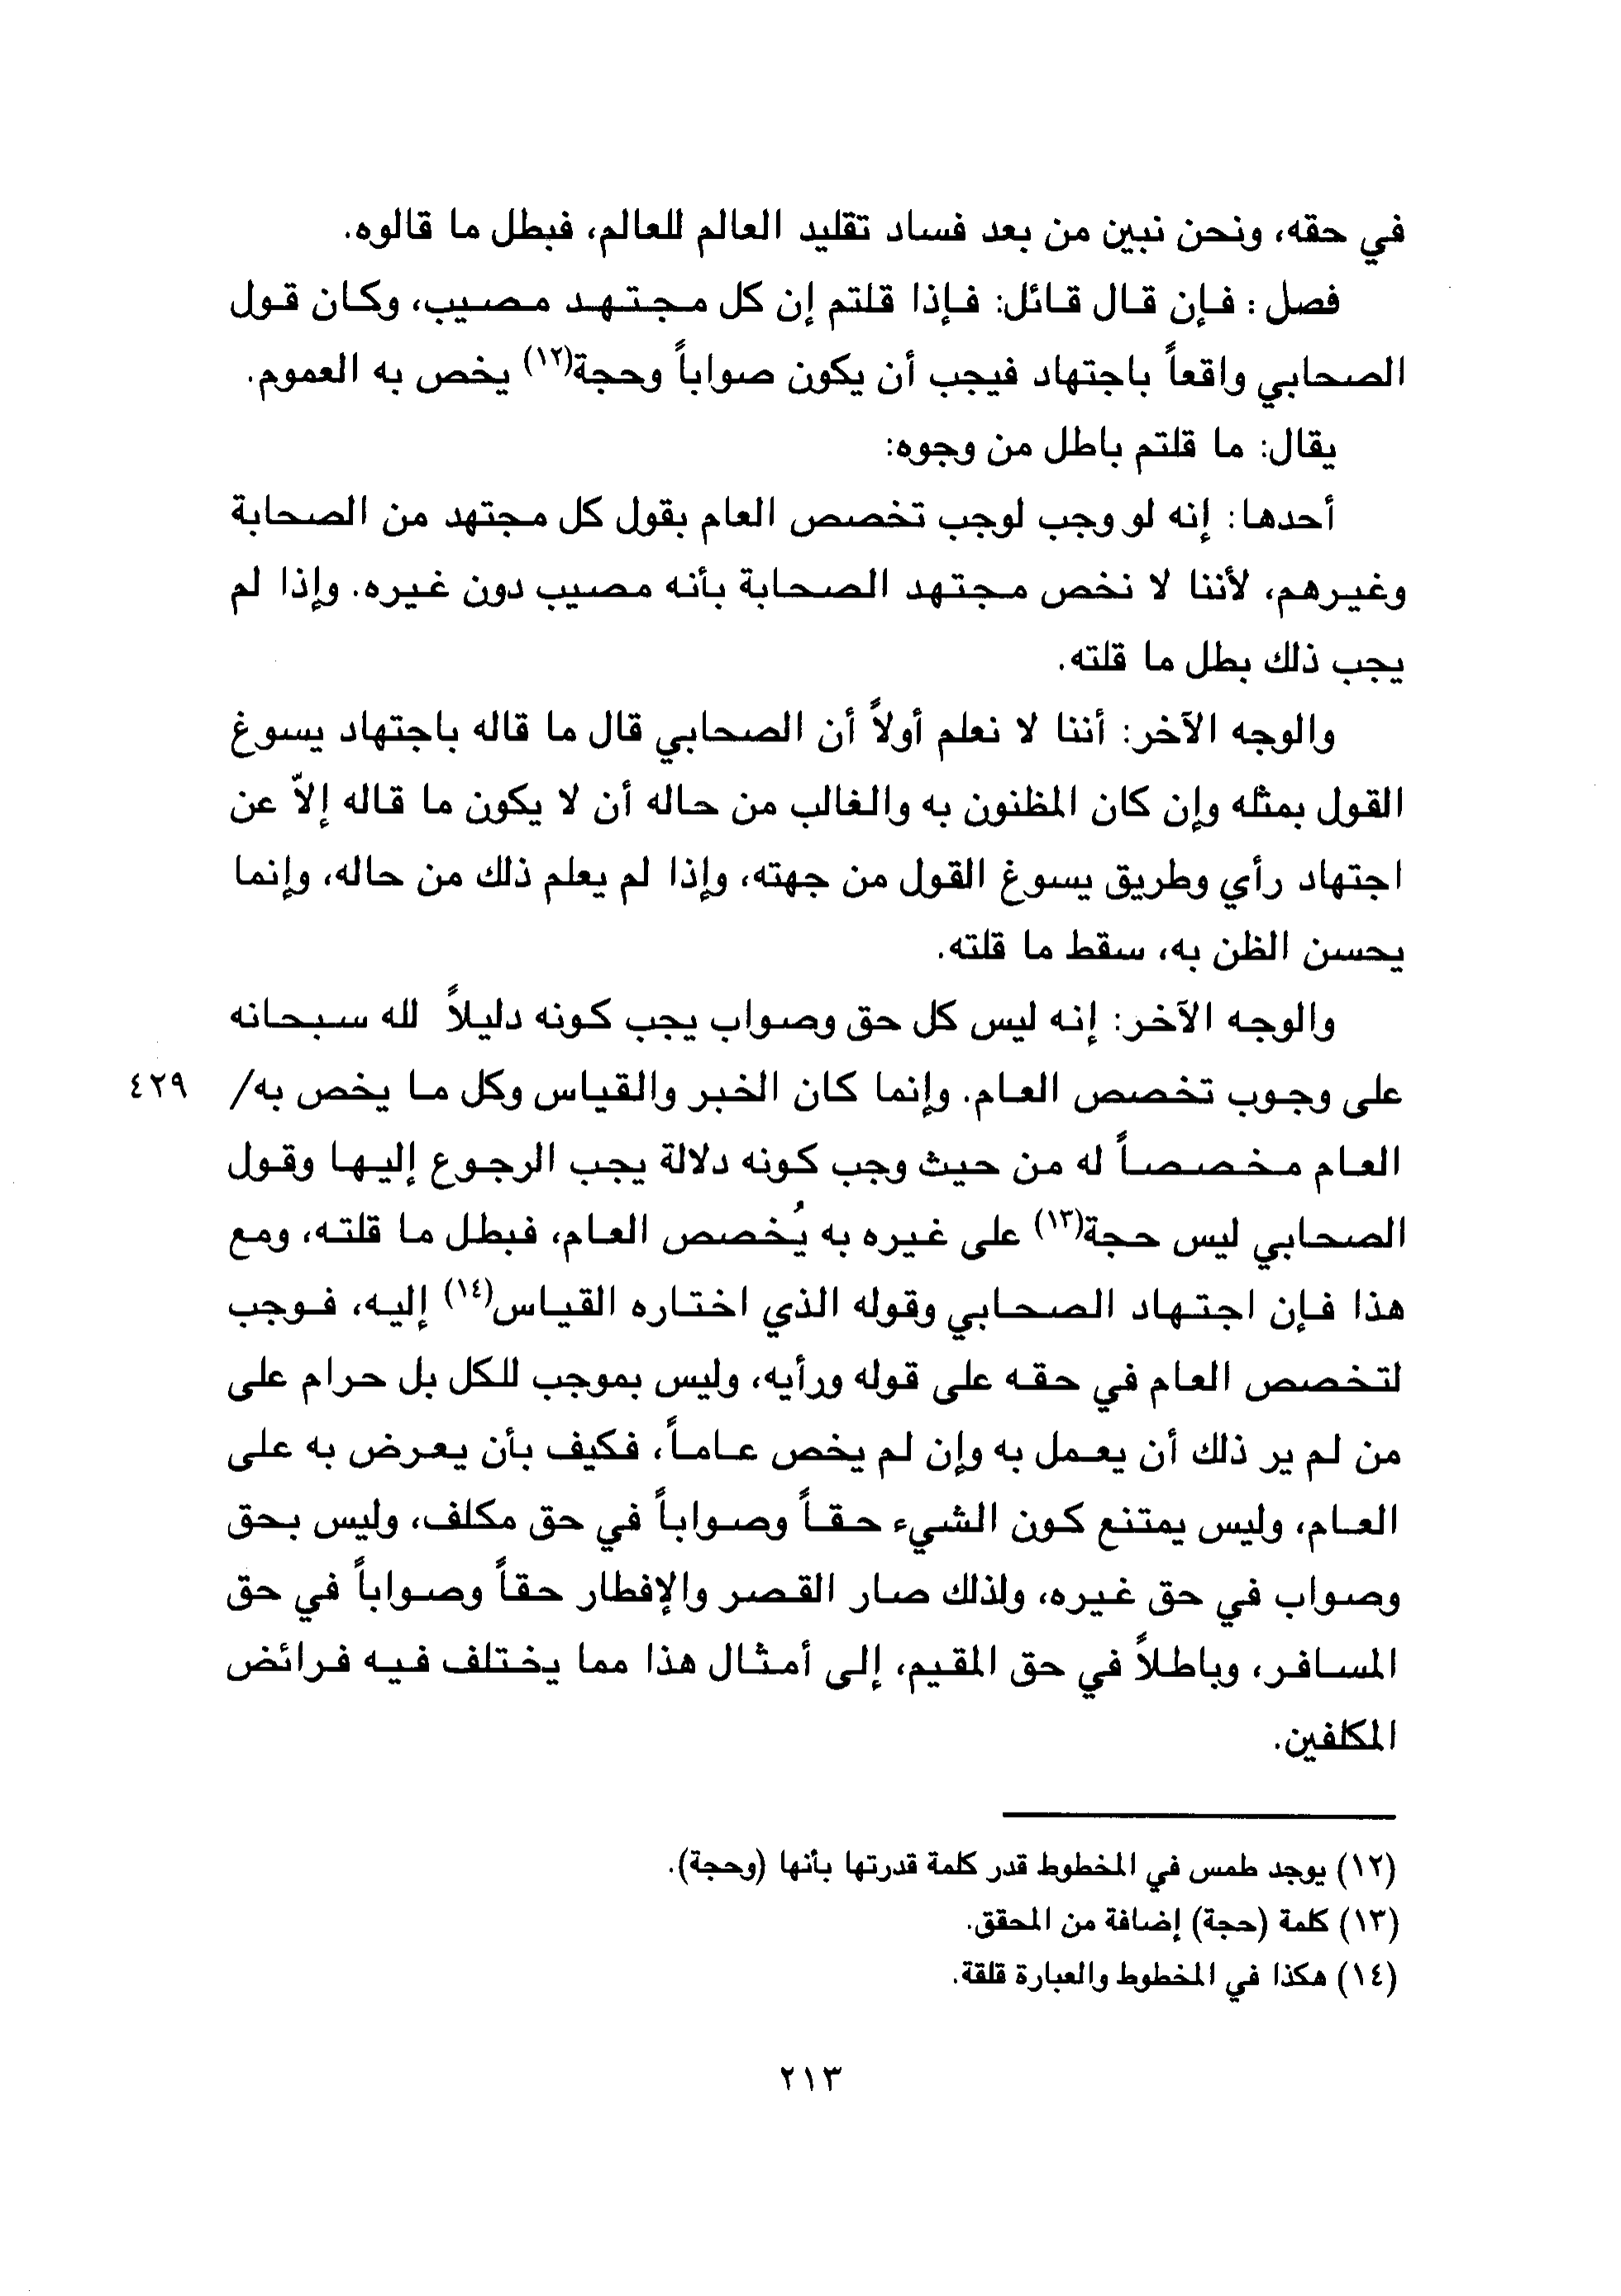 في حقه، ونحن نبين من بعد فساد تقليد العالم للعالم، فبطل ما قالوه.
فصل : فإن قال قائل: فإذا قلتم إن كل مجتهد مصيب، وكان قول
الصحابي واقعاً باجتهاد فيجب أن يكون صواباً وحجة(١٢) يخص به العموم.
يقال: ما قلتم باطل من وجوه:
أحدها: إنه لو وجب لوجب تخصص العام بقول كل مجتهد من الصحابة
وغيرهم، لأننا لا نخص مجتهد الصحابة بأنه مصيب دون غيره. وإذا لم
يجب ذلك بطل ما قلته.
والوجه الآخر: أننا لا نعلم أولاً أن الصحابي قال ما قاله باجتهاد يسوغ
القول بمثله وإن كان المظنون به والغالب من حاله أن لا يكون ما قاله إلاّ عن
اجتهاد رأي وطريق يسوغ القول من جهته، وإذا لم يعلم ذلك من حاله، وإنما
يحسن الظن به، سقط ما قلته.
والوجه الآخر: إنه ليس كل حق وصواب يجب كونه دليلاً لله سبحانه
على وجوب تخصص العام. وإنما كان الخبر والقياس وكل ما يخص به/ ٤٢٩
العام مخصصاً له من حيث وجب كونه دلالة يجب الرجوع إليها وقول
الصحابي ليس حجة(١٣) على غيره به يُخصص العام، فبطل ما قلته، ومع
هذا فإن اجتهاد الصحابي وقوله الذي اختاره القياس(١٤) إليه، فوجب
لتخصص العام في حقه على قوله ورأيه، وليس بموجب للكل بل حرام على
من لم ير ذلك أن يعمل به وإن لم يخص عاماً، فكيف بأن يعرض به على
العام، وليس يمتنع كون الشيء حقاً وصواباً في حق مكلف، وليس بحق
وصواب في حق غيره، ولذلك صار القصر والإفطار حقاً وصواباً في حق
المسافر، وباطلاً في حق المقيم، إلى أمثال هذا مما يختلف فيه فرائض
المكلفين.
(١٢) يوجد طمس في المخطوط قدر كلمة قدرتها بأنها (وحجة).
(١٣) كلمة (حجة) إضافة من المحقق.
(١٤) هكذا في المخطوط والعبارة قلقة.
٢١٣